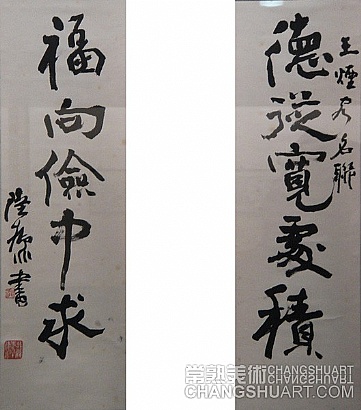 王煙客名聯
德從寬處積
福向儉中求
陸抑非書
常熟美術 CHANGSHUART
CHANGSHUART.COM